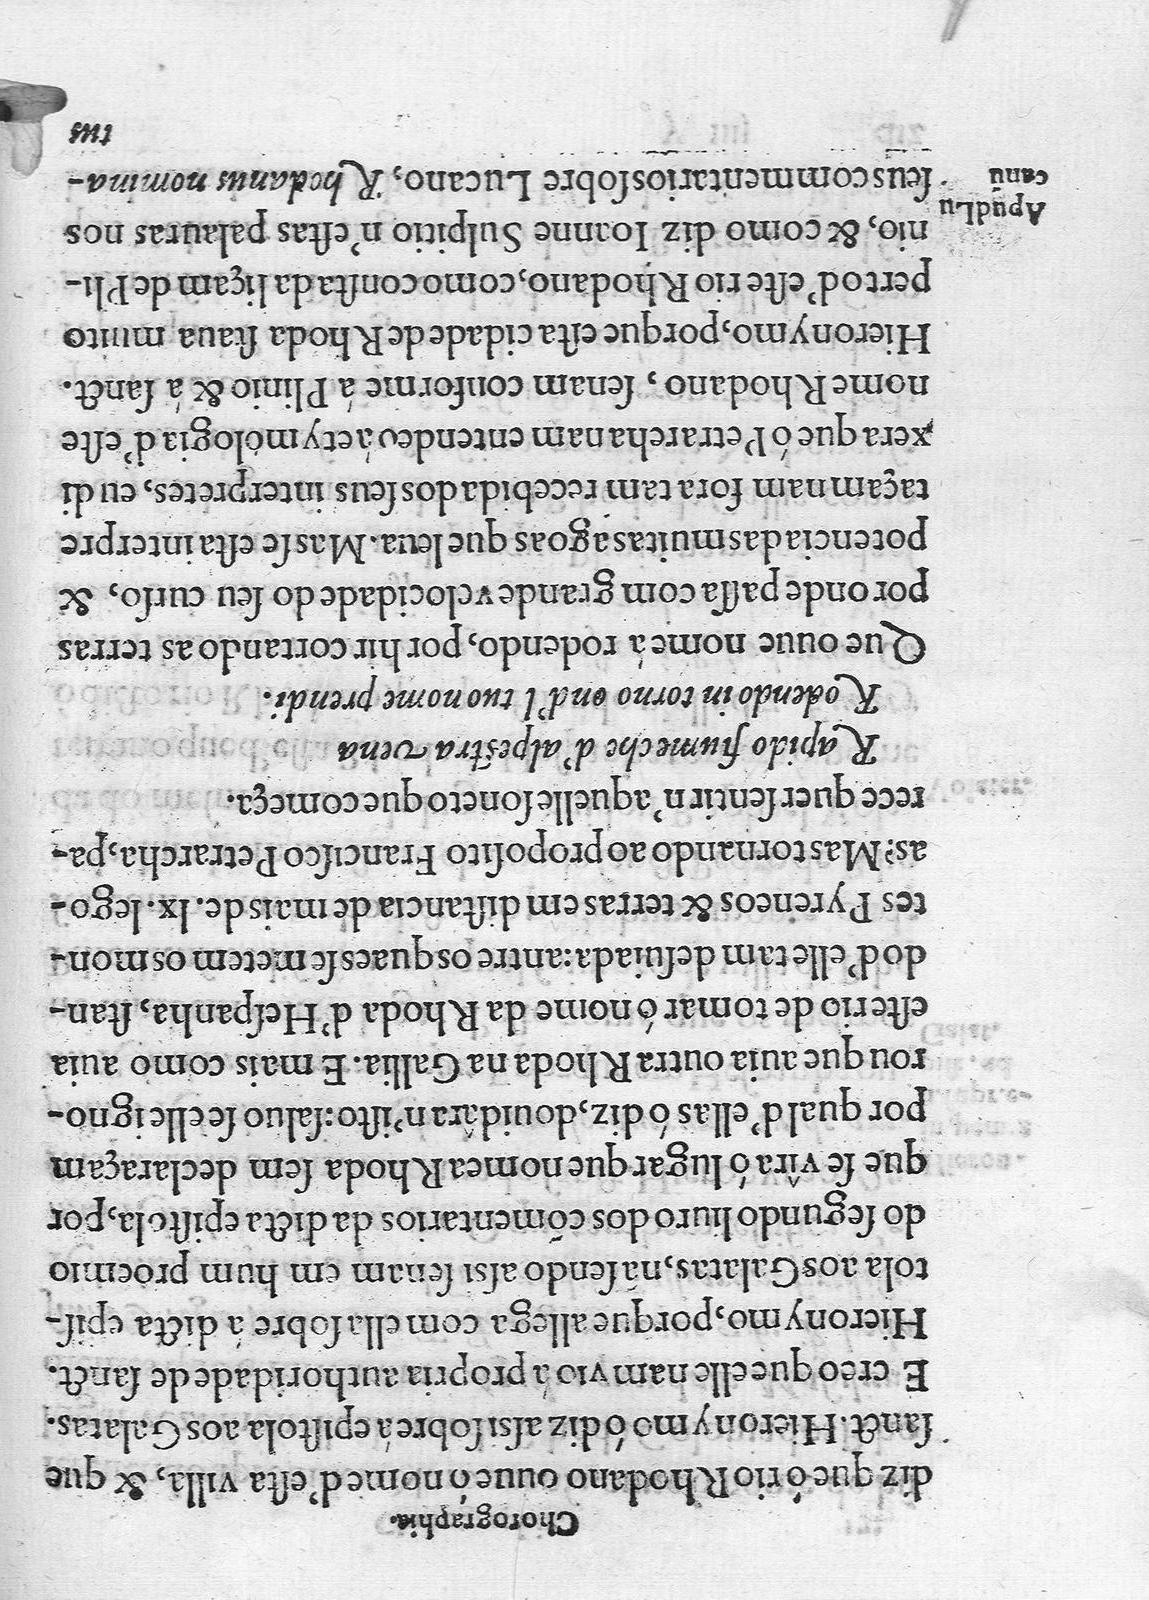 Chorographia.
diz que ó rio Rhodano ouue ó nome d'esta villa, & que
sanct. Hieronymo ó diz assi sobre á epistola aos Galatas.
E creo que elle nam vio á propria authoridade de sanct.
Hieronymo, porque allega com ella sobre á dicta epis-
tola aos Galatas, nã sendo assi senam em hum proemio
do segundo liuro dos cõmentarios da dicta epistola, por
que se vîra ó lugar que nomea Rhoda sem declaraçam
por qual d'ellas ó diz, douidâra n'isto: saluo se elle igno-
rou que auia outra Rhoda na Gallia. E mais como auia
este rio de tomar ó nome da Rhoda d'Hespanha, stan-
do d'elle tam desuiada: antre os quaes se metem os mon-
tes Pyreneos & terras em distancia de mais de .lx. lego-
as? Mas tornando ao proposito Francisco Petrarcha, pa-
rece quer sentir n'aquelle soneto que começa.
Rapido fiume che d'alpestra vena
Rodendo intorno ond'l tuo nome prendi.
Que ouue nome á rodendo, por hir cortando as terras
por onde passa com grande velocidade do seu curso, &
potencia das muitas agoas que leua. Mas se esta interpre
taçam nam fora tam recebida dos seus interpretes, eu di
xera que ó Petrarcha nam entendeo á etymologia d'este
nome Rhodano, senam conforme á Plinio & á sanct.
Hieronymo, porque esta cidade de Rhoda staua muito
perto d'este rio Rhodano, como consta da liçam de Pli-
nio, & como diz Ioanne Sulpitio n'estas palauras nos
seus commentarios sobre Lucano, Rhodanus nomina-
Apud Lu
canũ
tus